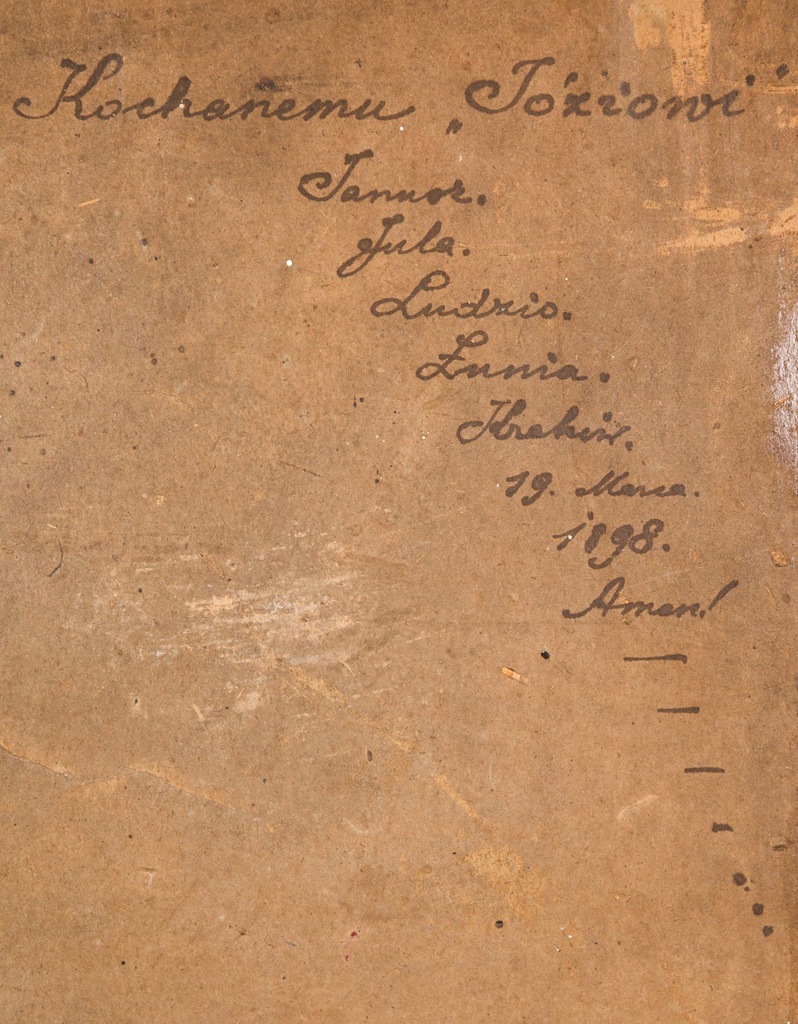 Kochanemu „Józiowi“
Janusz.
Jula.
Ludzio.
Żunia.
Kraków.
19. Marca.
1898.
Amen!